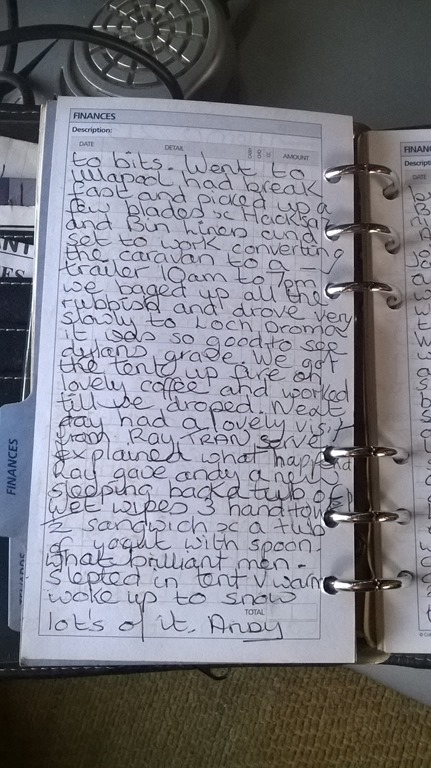 FINANCES
Description:
DATE DETAIL AMOUNT
to bits. Went to
ullapool had break
fast and picked up a
few blades x Hacksaw
and Bin Liners and
set to work converting
the caravan to a
trailer 10am to 7pm
we baged up all the
rubbish and drove very
slowly to Loch Droma
it was so good to see
dylans grave. We got
the tent up fire on
lovely coffee and worked
till we droped. Next
day had a lovely visit
from Ray TRAN serve
explained what happend
Ray gave andy a new
sleeping back a tub of
wet wipes 3 hand tow
2 sandwich x a tub
of yogut with spoon
what brilliant men.
slepted in tent v warm
woke up to snow
TOTAL
lot's of it. Andy
FINANCES
FINANC
Descript
DATE